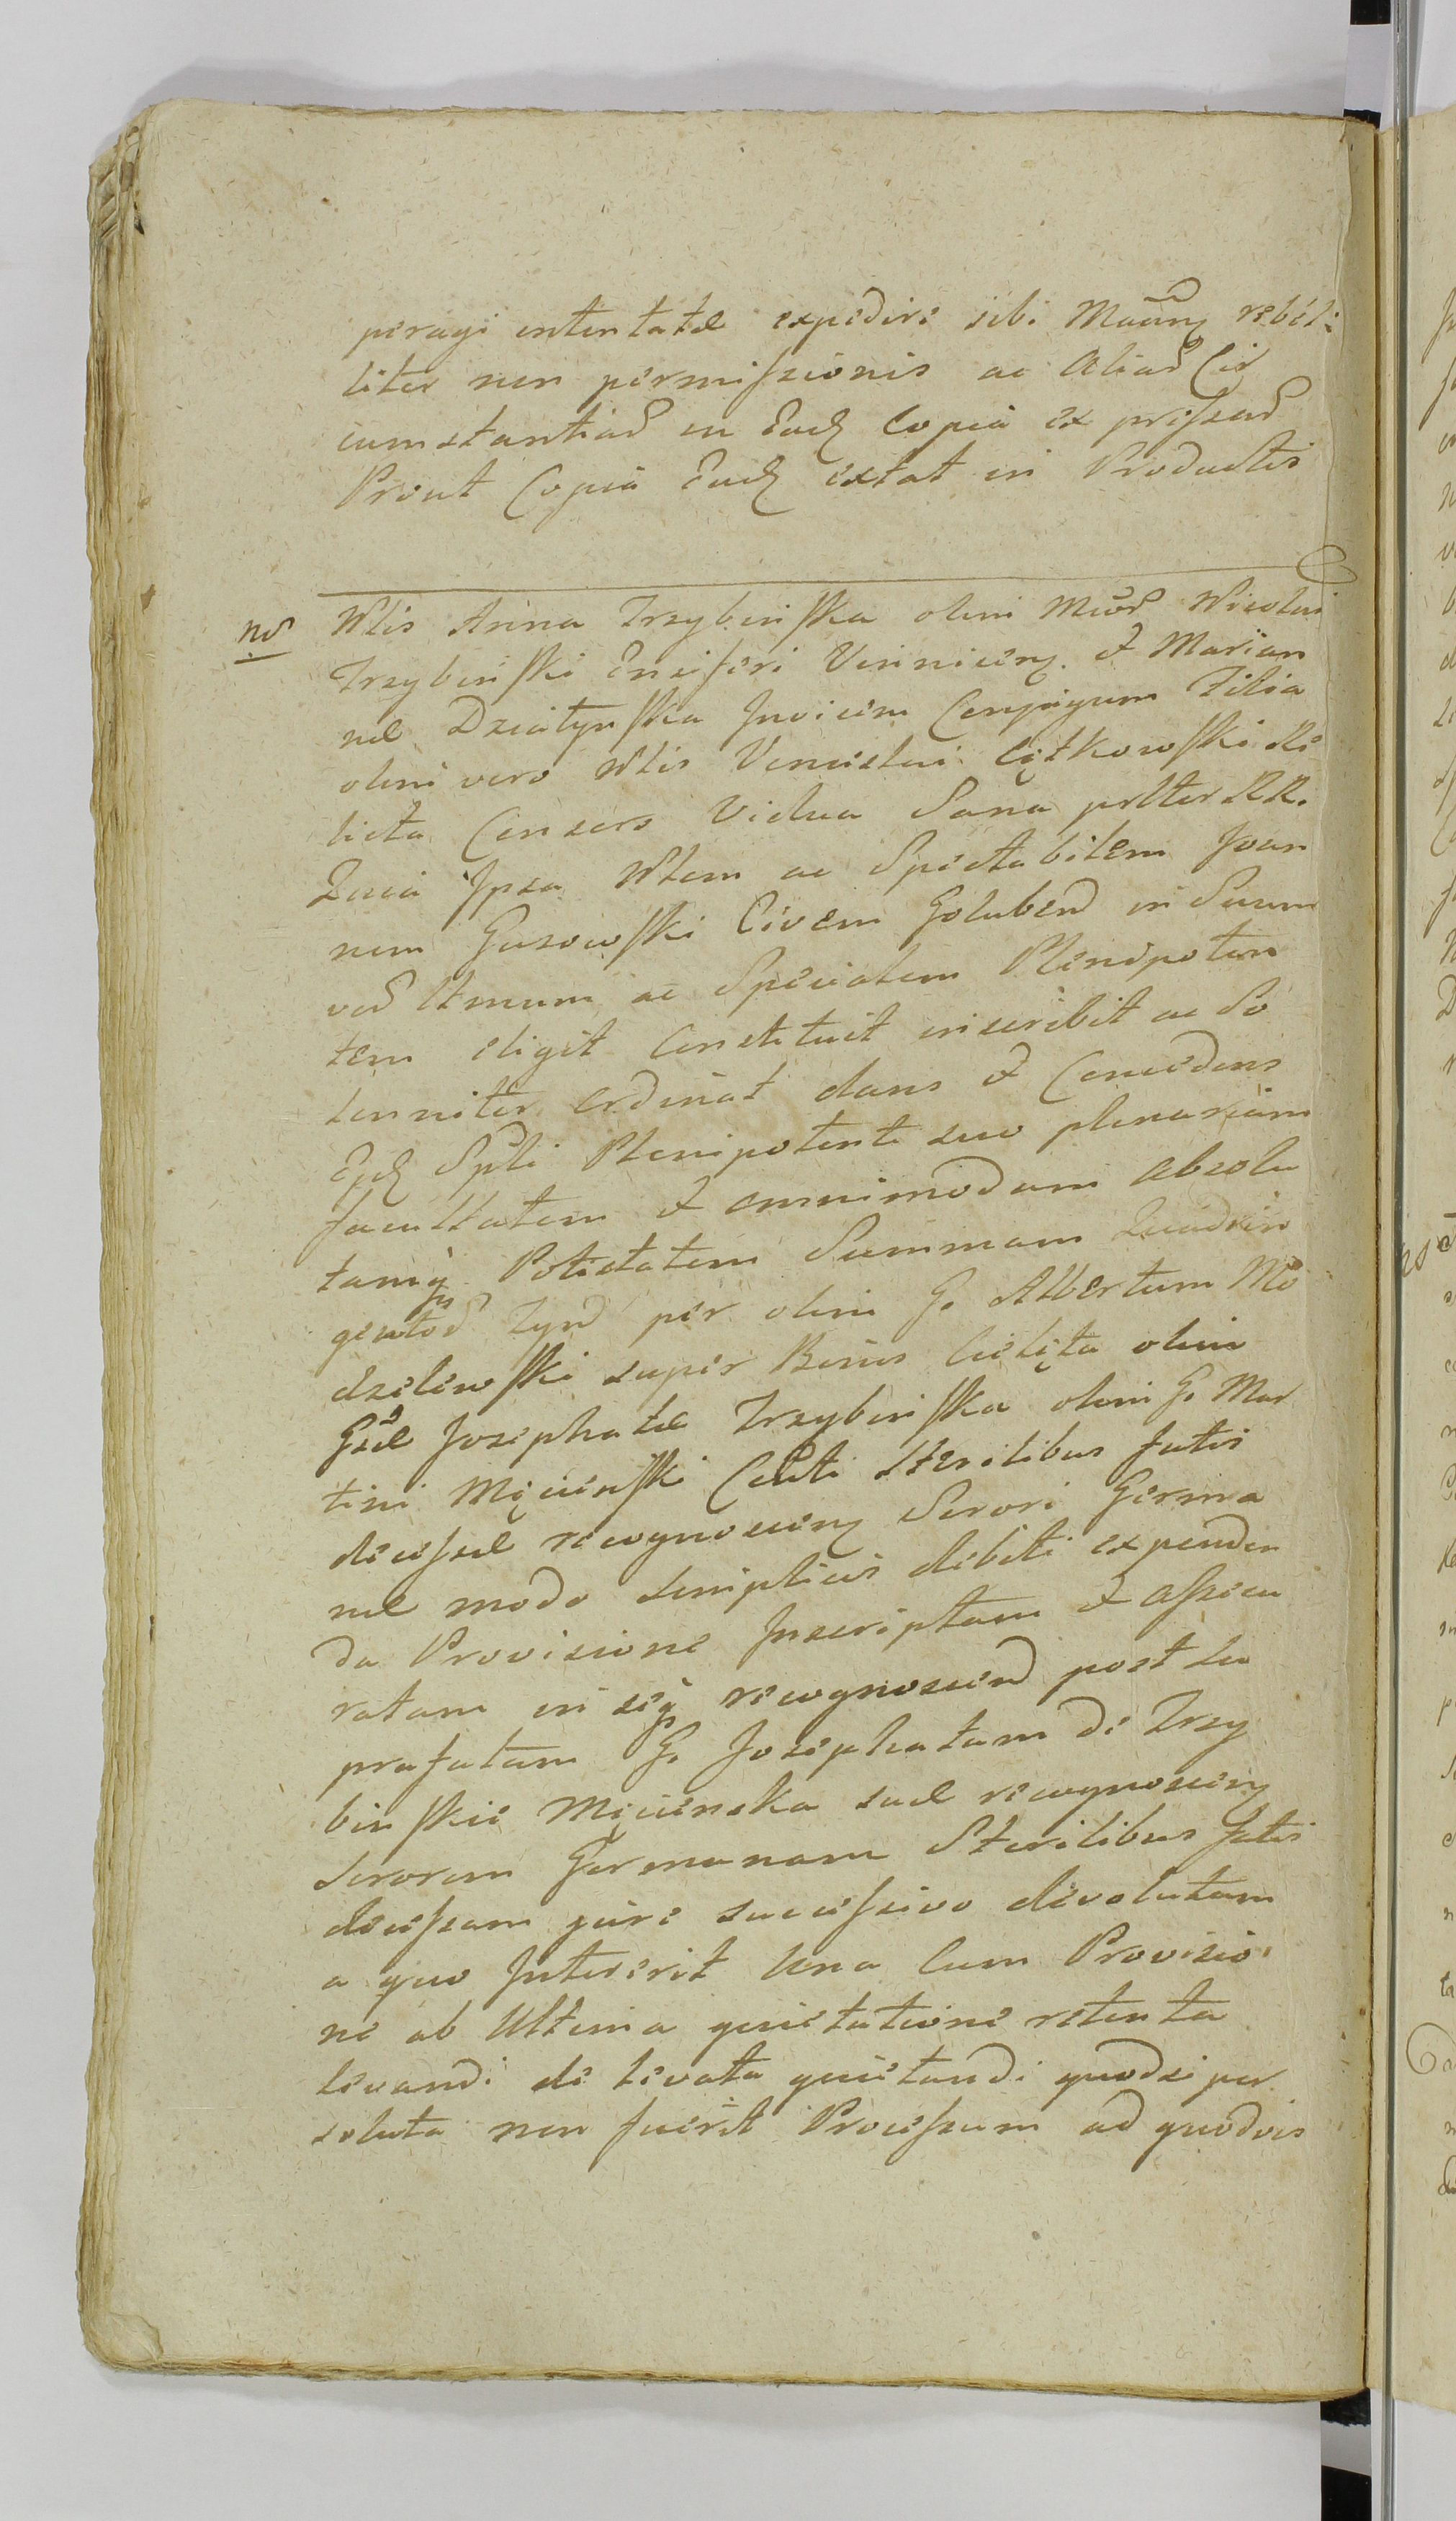 peragi intentatæ expedire sibi rebel
liter non permissionis ac aliar Cir
cumstantiar in Eadz Copia expressar
Prout Copia Eadz extat in Productis
Nblis Anna Trzybinska olim Nicolai
Trzybinski Ensiferi Vinnicen. & Marian
næ Dziatynska Invicem Conjugum Filia
olim vero Nblis Venceslai Cętkowski Re
licta Consors Vidua Sana psltter RR.
Quia Ipsa Nblem ac Spectabilem Joan
nem Gusowski Civem Golubens in Suum
verum Ltmum ac Specialem Plenipoten
tem eligit Constituit inscribit ac So
lenniter ordinat dans & Concedens
Ejdz Spli Plenipotenti suo plenariam
facultatem & omnimodam absolu
tamq Potestatem Summam Quadrin
gentor Tynf per olim G. Albertum Mo
dzelewski super Bonis Cielęta olim
Gsæ Josephatæ Trzybinska olim G. Mar
tini Męcienski Consti Sterilibus fatis
decessæ recognoscens Sorori Germa
næ modo simplicis debiti expenden
da Provisione Inscriptam & assecu
ratam in seq recognoscens post
prafatam G. Josephatam de Trzy
binskie Męcienska suæ recognoscens
Sororem Germanam Sterilibus fatis
decessam jure successivo devolutam
a quo Intererit Una Cum Provisio
ne ab Ultima quietatione retenta
levandi de levata quietandi quodsi per
soluta non fuerit Processum ad quodvis